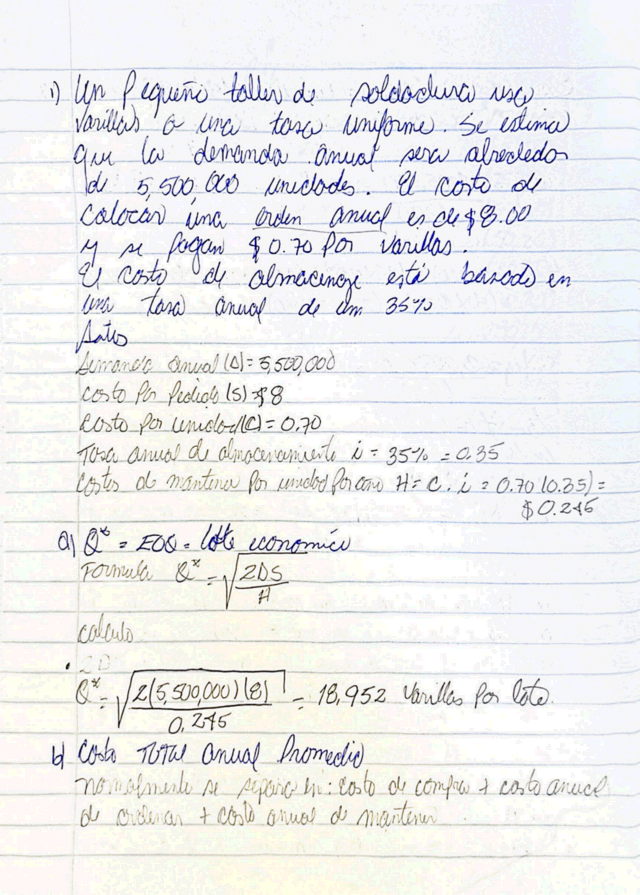 1) Un pequeño taller de soldadura usa
varillas a una tasa uniforme. Se estima
que la demanda anual sera alrededor
de 5,500,000 unidades. El costo de
colocar una orden anual es de $8.00
y se pagan $0.70 por varillas.
El costo de almacenaje está basado en
una tasa anual de un 35%
Datos
Demanda anual (D) = 5,500,000
costo por pedido (S) = $8
costo por unidad (C) = 0.70
Tasa anual de almacenamiento i = 35% = 0.35
Costos de mantener por unidad por ano H = C . i = 0.70 (0.35) =
$0.245
a) Q* = EOQ = lote economico
Formula Q* = √2DS/H
calculo
• 2D
Q* = √2(5,500,000)(8)/0.245 = 18,952 varillas por lote.
b) Costo Total anual Promedio
normalmente se separa en: costo de compra + costo anual
de ordenar + costo anual de mantener